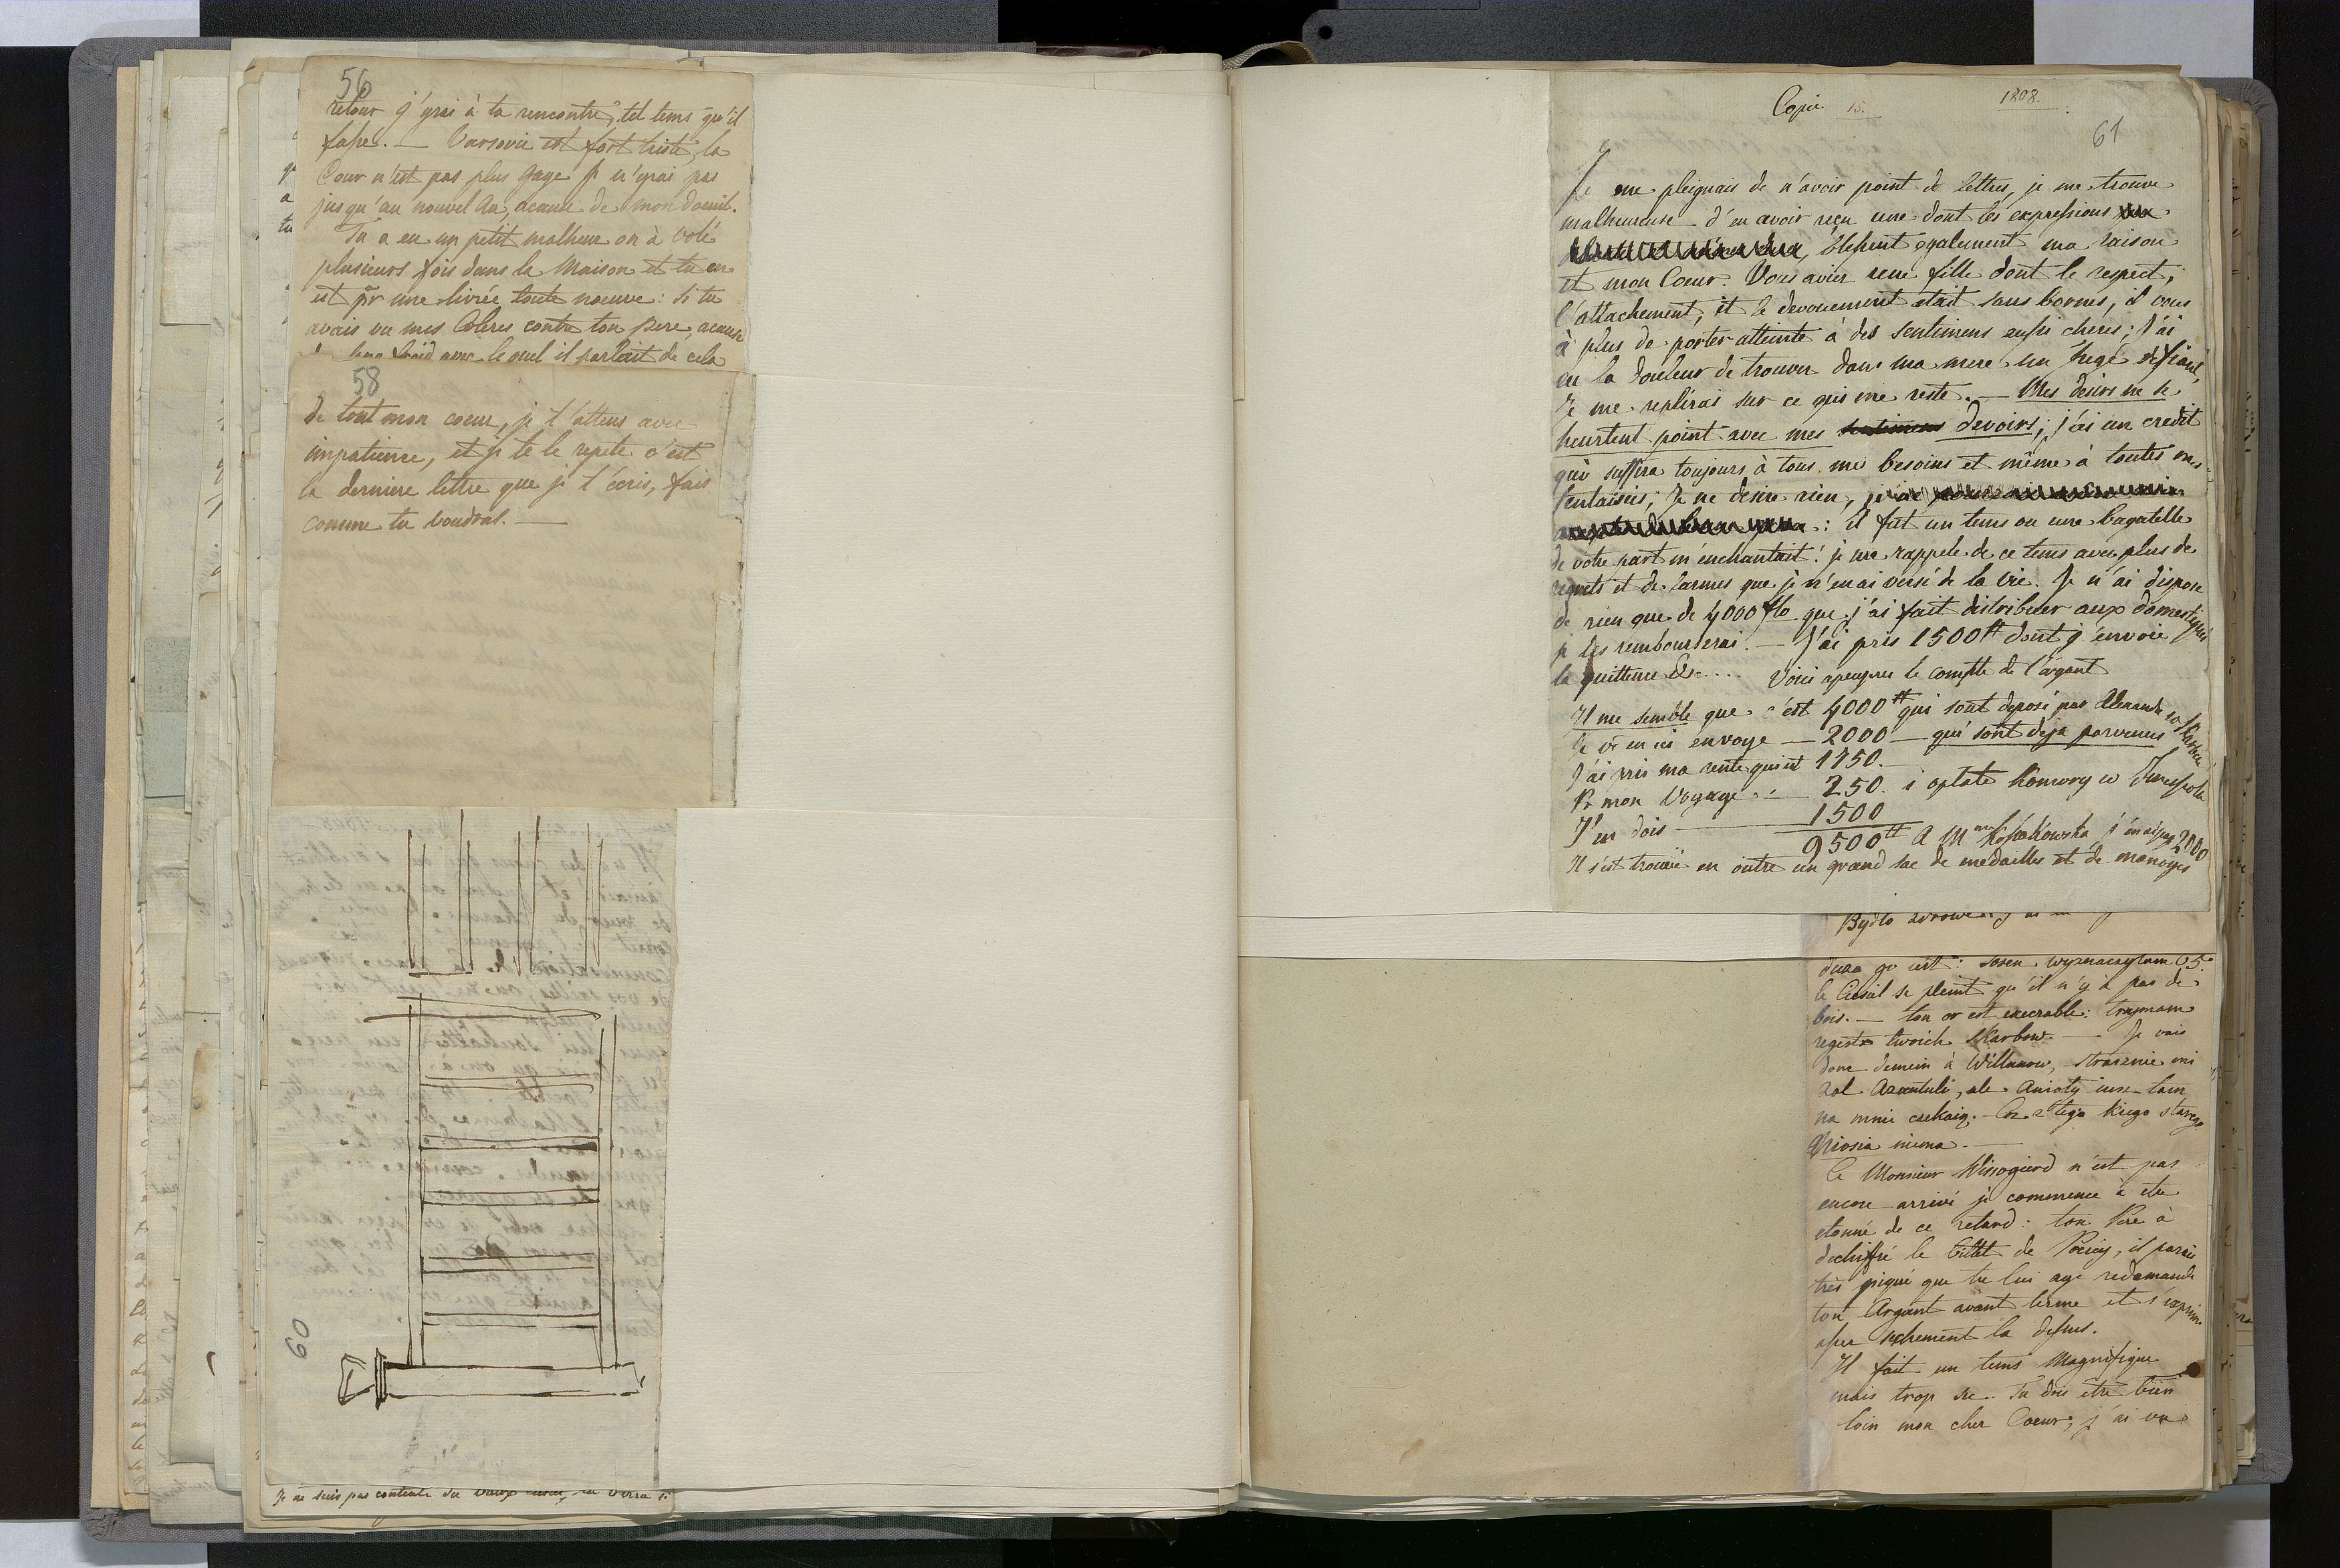 56
retour j'yrai à ta rencontre, tel tems qu'il
fasse. — Varsovie est fort triste, la
Cour n'est pas plus gaye je n'yrai pas
jusqu'au nouvel An, acause de mon doeuil.
Tu a eu un petit malheur on à volé
plusieurs fois dans la Maison et tu en
est pr une livrée toute noeuve: si tu
avais vu mes Coleres contre ton pere, acause
froid avec le quel il parlait de cela
58
de tout mon coeur, je t'attens avec
impatience, et je te le repete c'est
la derniere lettre que je t'écris, fais
comme tu voudras. —
60
Je ne suis pas contente du tu verra si
Copie 15. 1808.
61
Je me pleignais de n'avoir point de Lettres, je me trouve
malheureuse d'en avoir reçu une dont les expressions
blessent egalement ma raison
et mon Coeur. Vous aviez une fille dont le respect,
l'attachement, et le devouement etait sans bornes, il vous
à plus de porter atteinte à des sentimens aussi cheres; j'ai
eu la douleur de trouver dans ma mere un juge defiant,
Je me replirai sur ce qui me reste. — Mes desirs ne se
heurtent point avec mes sentimens devoirs; j'ai un credit
qui suffira toujours à tous mes besoins et même à toutes mes
fentaisies; Je ne desire rien,
: il fut un tems ou une bagatelle
de votre part m'enchantait! je me rappele de ce tems avec plus de
regrets et de larmes que je n'en ai versé de la vie. Je n'ai disposé
de rien que de 4000 flo que j'ai fait distribuer aux domestiques
je les rembourserai. — J'ai pris 1500# dont j'envoie
la quittence &c.... Voici apeuprès le compte de l'argant
Il me semble que c'est 4000# qui sont deposé par Alexandre w Skarbcu
Je Vs en ai envoye — 2000 — qui sont deja parvenus
J'ai pris ma rente qui est 1750. —
Pr mon Voyage — 250. i oplate Komory w Terespolu
J'en dois — 1500
9500# A Mme Kossakowska j'en ai pay 2000
Il s'est trouvé en outre un grand sac de medailles et de monoyes
Bydło zdrowe
duza go iest: sosen wyznaczylam 65.
le Ciesal se pleint qu'il n'y à pas de
bois. — ton or est execrable: trzymam
regestr twoich Skarbow. — Je vais
donc demein à Willanow, strasznie mi
zal Azentuli, ale Anioly insze tam
na mnie czekaią. Co z tego kiego starego
Niosia niema. —
Ce Monsieur Wissogierd n'est pas
encore arrivé je commence à etre
etonné de ce retard: ton Pere à
dechiffré le billet de Pociey, il parait
très piqué que tu lui aye redemandé
ton Argant avant terme et s'exprime
assez sechement la dessus.
Il fait un tems Magnifique
mais trop sec. Tu dois etre bien
loin mon cher Coeur, j'ai vu